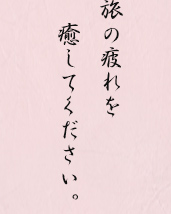 旅の疲れを
癒してください。